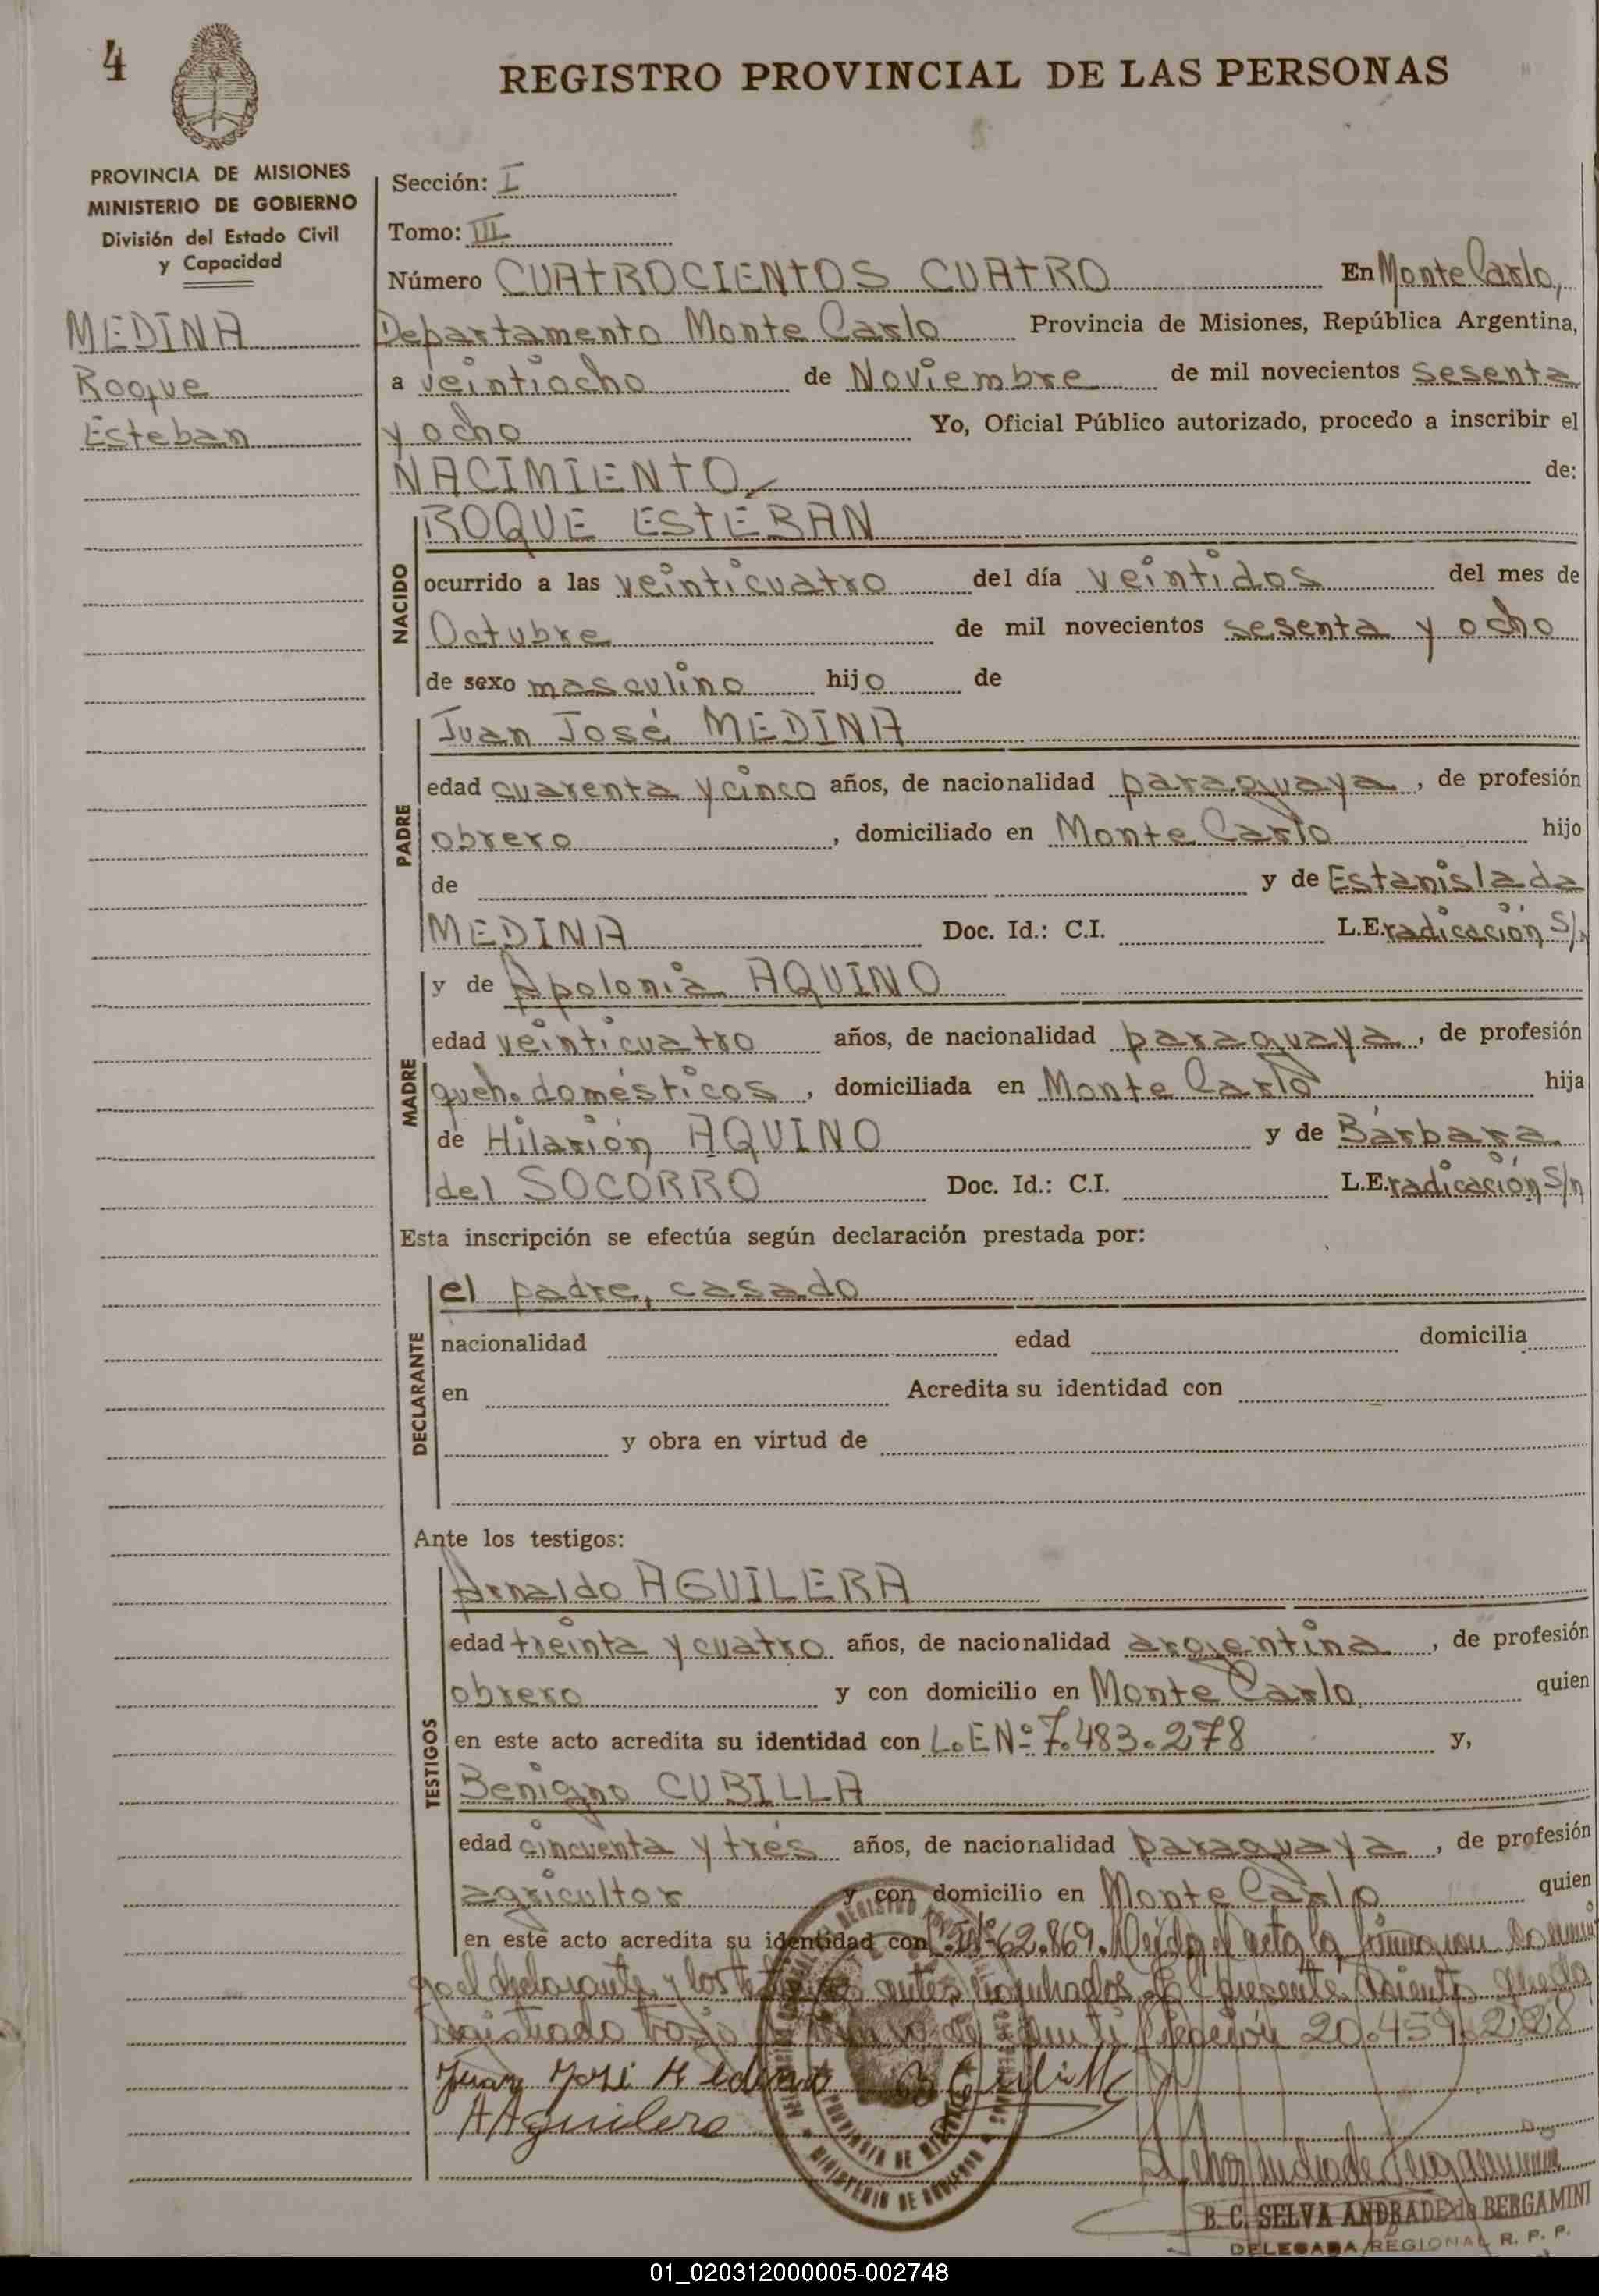 4
REGISTRO PROVINCIAL DE LAS PERSONAS
PROVINCIA DE MISIONES
MINISTERIO DE GOBIERNO
División del Estado Civil
y Capacidad
MEDINA
Roque
Esteban
Sección: I
Tomo: III
Número CUATROCIENTOS CUATRO En Monte Carlo,
Departamento Monte Carlo Provincia de Misiones, República Argentina,
a veintiocho de Noviembre de mil novecientos sesenta
y ocho Yo, Oficial Público autorizado, procedo a inscribir el
NACIMIENTO de:
NACIDO
ROQUE ESTEBAN
ocurrido a las veinticuatro del día veintidos del mes de
Octubre de mil novecientos sesenta y ocho
de sexo masculino hijo de
PADRE
Juan José MEDINA
edad cuarenta y cinco años, de nacionalidad paraguaya, de profesión
obrero, domiciliado en Monte Carlo hijo
de y de Estanislada
MEDINA Doc. Id.: C.I. L.E. radicación S/n
MADRE
y de Apolonia AQUINO
edad veinticuatro años, de nacionalidad paraguaya, de profesión
queh. domésticos, domiciliada en Monte Carlo hija
de Hilarión AQUINO y de Bárbara
del SOCORRO Doc. Id.: C.I. L.E. radicación S/n
Esta inscripción se efectúa según declaración prestada por:
DECLARANTE
el padre, casado
nacionalidad edad domicilia
en Acredita su identidad con
y obra en virtud de
Ante los testigos:
TESTIGOS
Arnaldo AGUILERA
edad treinta y cuatro años, de nacionalidad argentina, de profesión
obrero y con domicilio en Monte Carlo quien
en este acto acredita su identidad con L.E Nº 7.483.278 y,
Benigno CUBILLA
edad cincuenta y tres años, de nacionalidad paraguaya, de profesión
agricultor y con domicilio en Monte Carlo quien
en este acto acredita su identidad con C.I Nº 62.869. Leída el acta la firman con
el declarante y los testigos antes nombrados. El presente asiento queda
registrado bajo 20.459.228
Juan José Medina B Cubilla
A Aguilera
PROVINCIA DE MISIONES
MINISTERIO DE GOBIERNO
B. C. SELVA ANDRADE de BERGAMINI
DELEGADA REGIONAL R. P. P.
01_020312000005-002748